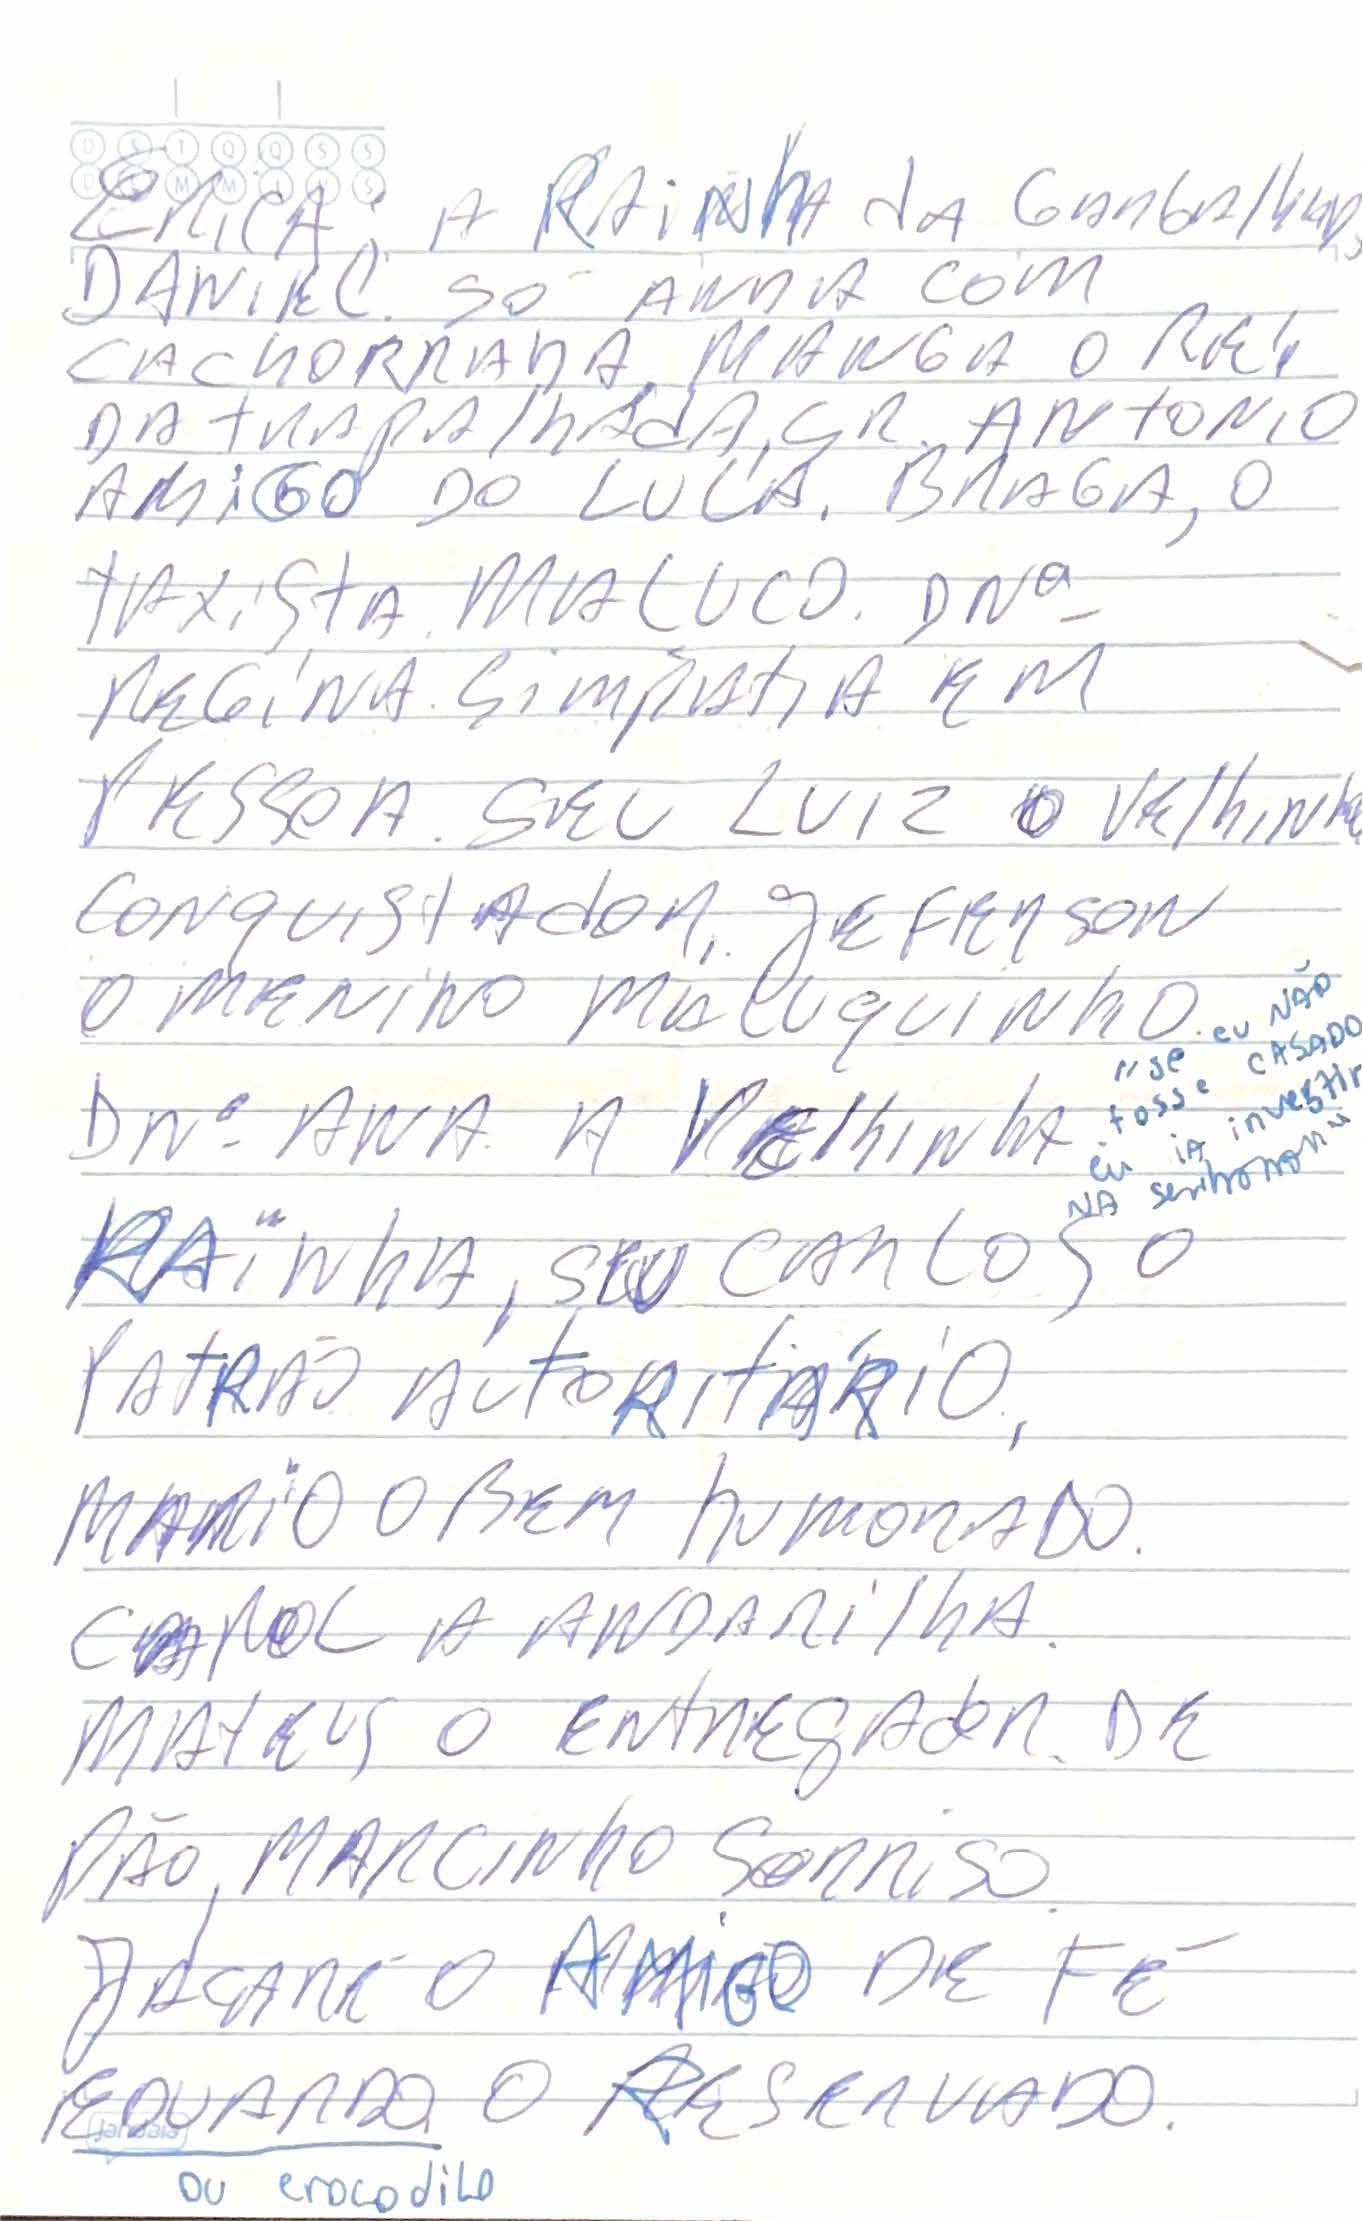 D S T Q Q S S
D S M M J S S
Erica, a Rainha da Gambalhada,
DANIEL só ANDA COM
CACHORRADA. MANGA O REI
DA TRAPALHADA, SR. ANTONIO
AMIGO DO LULA. BRAGA, O
TAXISTA MALUCO. DNª
REGINA. SIMPATIA EM
PESSOA. SEU LUIZ O VElhinho
CONQUISTAdOR, JEFERSON
O MENINO MALUQUINHO.
DNª ANA A VElhinha
RAINhA, SEU CARLOS O
PATRÃO AUTORITÁRIO,
MARIO O BEM humORADO.
CAROL A ANDARILhA.
MATEUS O ENTREGAdOR DE
PÃO, MARCINhO SORRISO.
JACARÉ O AMIGO DE FÉ
EDUARDO O RESERVADO.
"se eu NÃO
fosse CASADO
eu IA investir
NA senhora"
jandaia
ou crocodilo